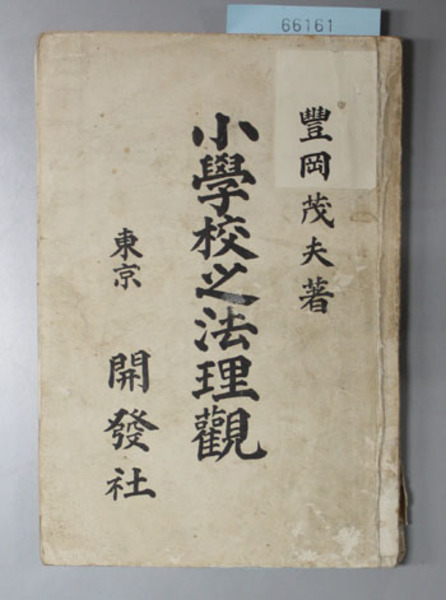 66161
豐岡茂夫著
小學校之法理觀
東京 開發社